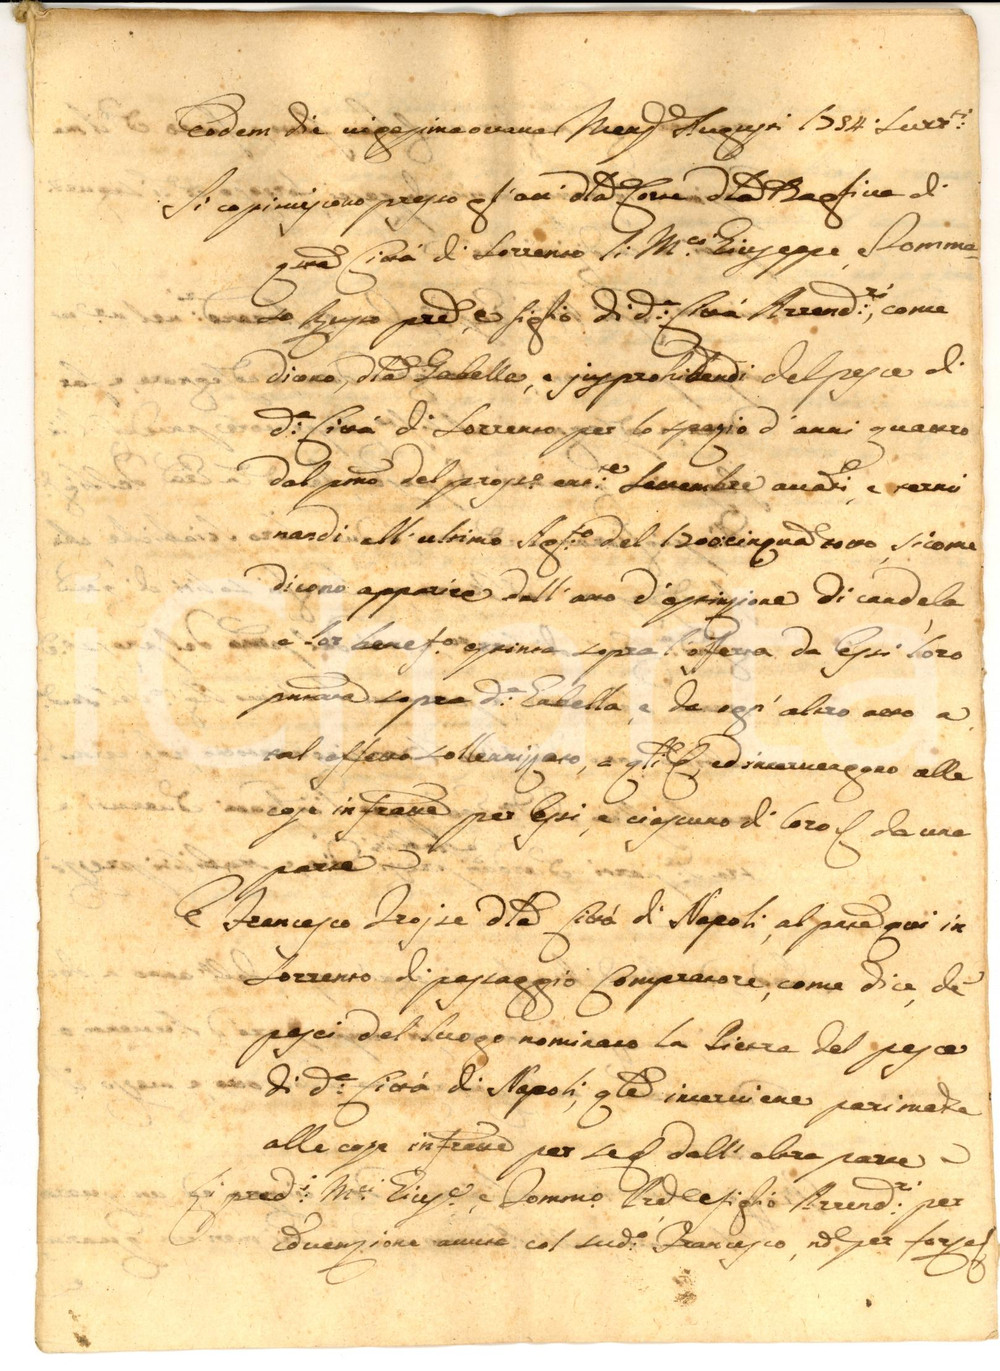 Eodem die vigesimaottava Mens. Augusti 1754. Surr.ti
Si costituiscono presso gl'atti della Corte della Bagliva di
questa Città di Sorrento li M.ci Giuseppe, e Tomma-
so pred., e figlio di d.a Città Arrend.ri, come
dicono, della Gabella, e jusprohibendi del pesce di
d.a Città di Sorrento per lo spazio d'anni quattro
dal primo del pross.o ent.e Settembre avanti, e termi
nandi all'ultimo Ag.to del 1700cinquantotto, sicome
dicono apparire dall'atto d'estinzione di candela
a lor benef.o estinta sopra l'offerta da Essi loro
sopra d.a Gabella, e da ogn'altro atto a
tal effetto sollennizzato, a quali &, ed intervengono alle
cose infratte per Essi, e ciascuno di loro & da una
parte
E Francesco Trojse della Città di Napoli, al presente qui in
Sorrento di passaggio Compratore, come dice, de'
pesci del luogo nominato la Pietra del pesce
di d.a Città di Napoli, quale interviene parimente
alle cose infratte per se & dall'altra parte
Li pred.i M.ci Gius.e, e Tommo. Pad.e, e figlio Arrend.ri per
convenzione avuta col sud.o Francesco, non per forza &